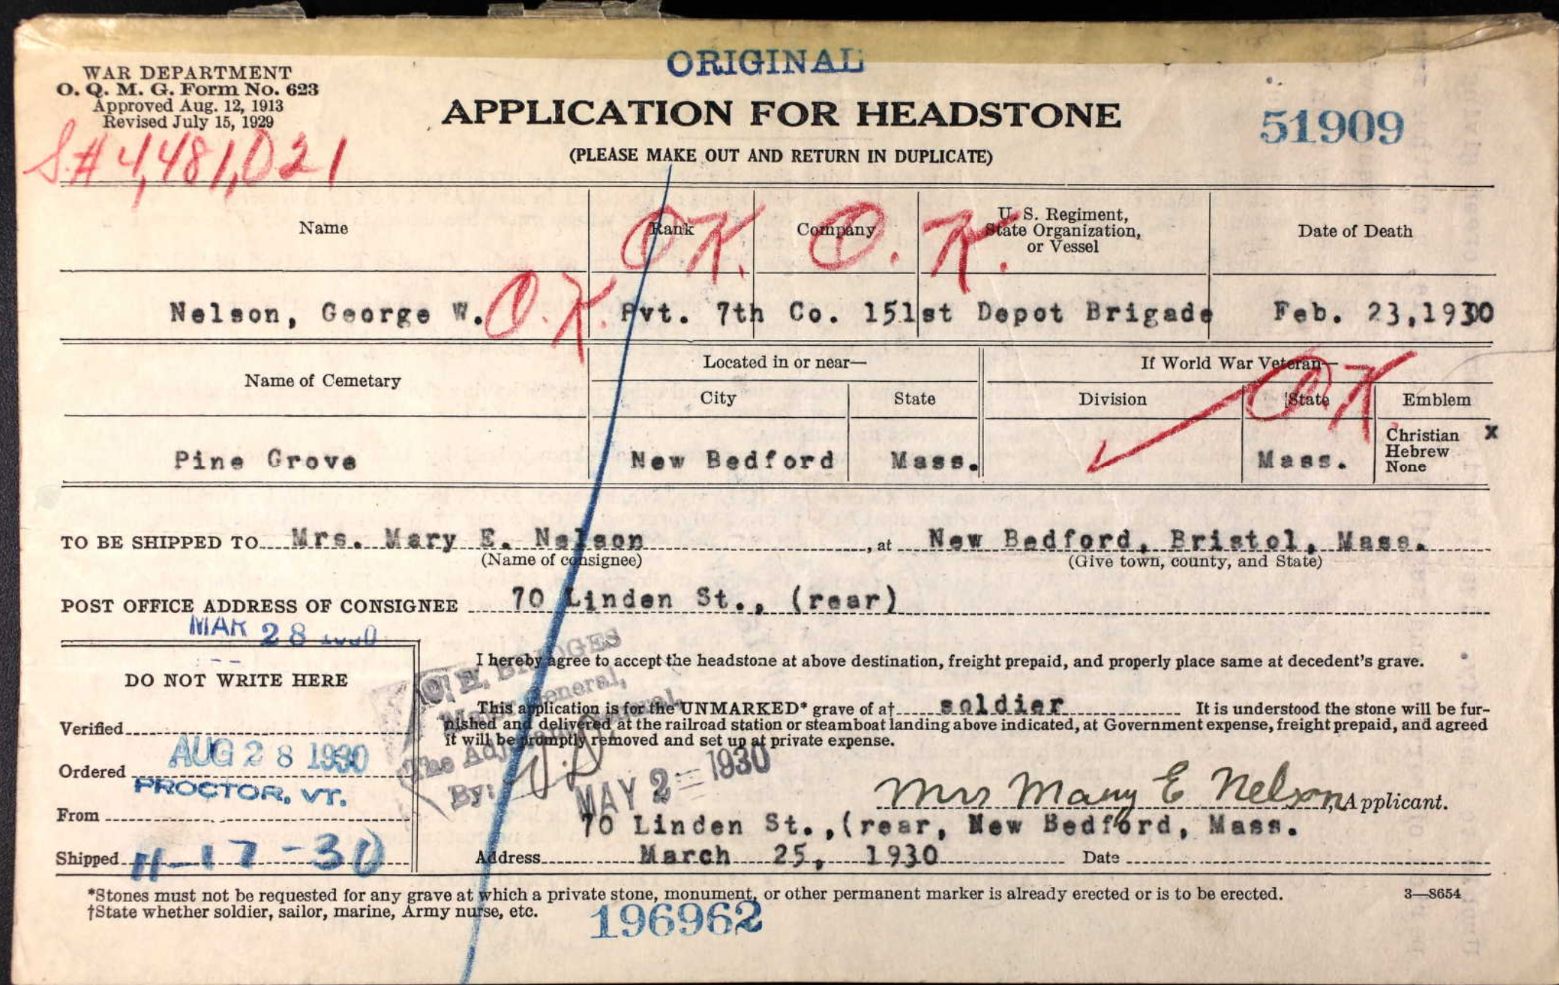 ORIGINAL
WAR DEPARTMENT
O. Q. M. G. Form No. 623
Approved Aug. 12, 1913
Revised July 15, 1929
S.# 4,481,021
APPLICATION FOR HEADSTONE
(PLEASE MAKE OUT AND RETURN IN DUPLICATE)
51909
Name Rank Company U. S. Regiment, State Organization, or Vessel Date of Death
O.K. O.K.
Nelson, George W. O.K. Pvt. 7th Co. 151st Depot Brigade Feb. 23,1930
Name of Cemetary Located in or near— If World War Veteran—
City State Division State Emblem
O.K.
Pine Grove New Bedford Mass. Mass. Christian x
Hebrew
None
TO BE SHIPPED TO Mrs. Mary E. Nelson, at New Bedford, Bristol, Mass.
(Name of consignee) (Give town, county, and State)
POST OFFICE ADDRESS OF CONSIGNEE 70 Linden St., (rear)
MAR 28 1930
DO NOT WRITE HERE
Verified
Ordered AUG 28 1930
PROCTOR, VT.
From
Shipped 11-17-30
I hereby agree to accept the headstone at above destination, freight prepaid, and properly place same at decedent's grave.
BRIDGES
General,
The Adjutant General,
By:
MAY 2 1930
This application is for the UNMARKED* grave of a† soldier It is understood the stone will be fur-
nished and delivered at the railroad station or steamboat landing above indicated, at Government expense, freight prepaid, and agreed
it will be promptly removed and set up at private expense.
Mrs Mary E Nelson, Applicant.
70 Linden St.,(rear, New Bedford, Mass.
Address March 25, 1930 Date
*Stones must not be requested for any grave at which a private stone, monument, or other permanent marker is already erected or is to be erected. 3—8654
†State whether soldier, sailor, marine, Army nurse, etc.
196962